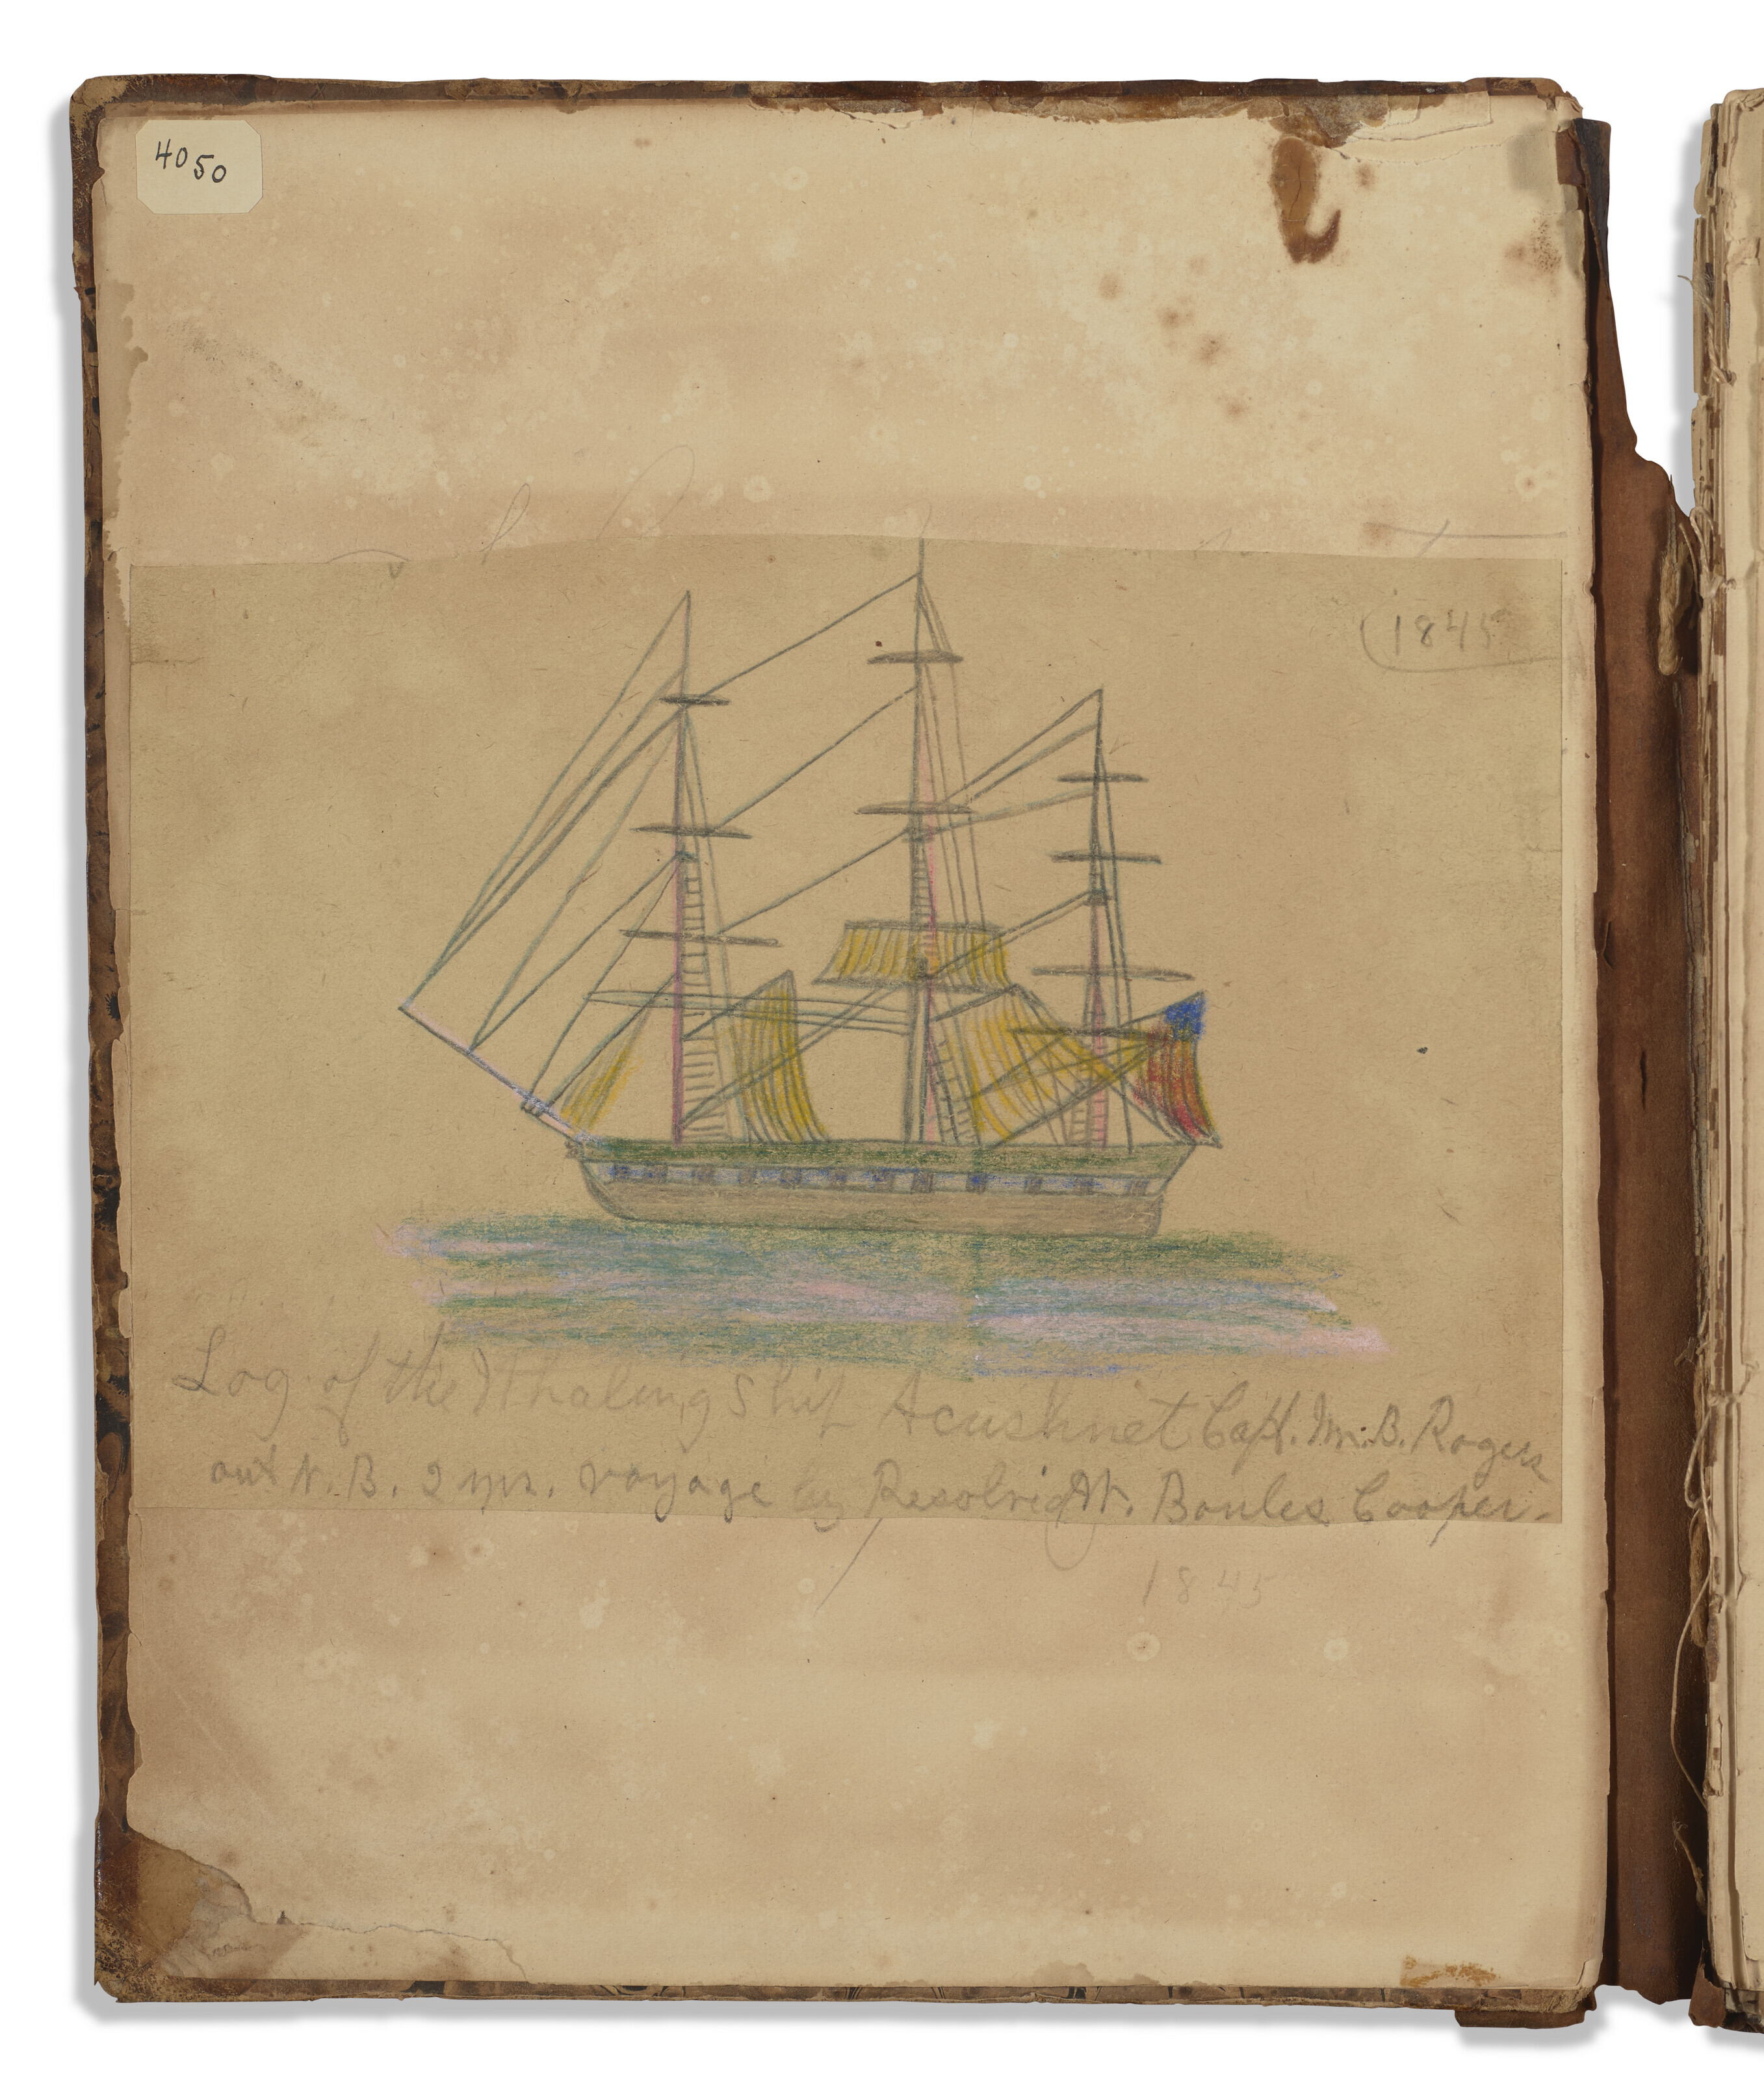 4050
1845
Log of the Whaling Ship Acushnet Capt. Wm. B. Rogers
out N. B. 2 yrs. voyage by W. Boules Cooper.
1845